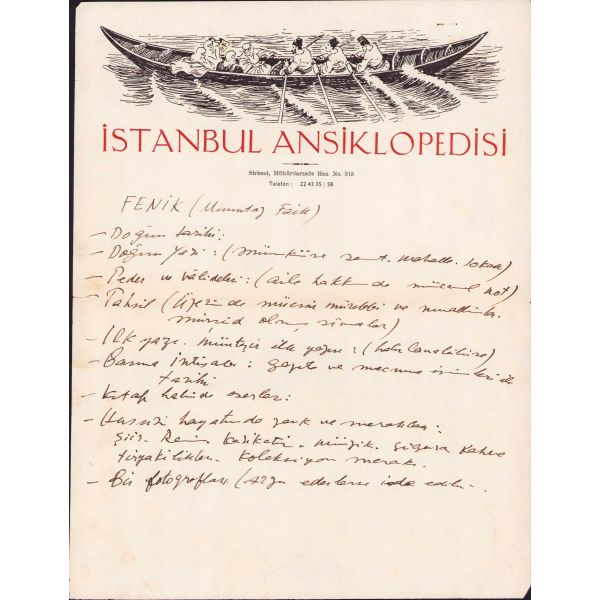 İSTANBUL ANSİKLOPEDİSİ
Sirkeci, Mühürdarzade Han No. 315
Telefon : 22 43 35 / 58
FENİK (Mümtaz Faik)
— Doğum tarihi:
— Doğum Yeri : (mümkünse semt. mahalle. sokak)
— Peder ve vâlideleri : (aile hakkında mücmel not)
— Tahsil (Üzerinde müessir mürebbi ve muallimler.
mürşid olmuş simalar)
— İlk yazı. münteşir ilk yazısı : (hatırlanabilirse)
— Basına İntisabı : gazete ve mecmua isimleri ile
tarihi
— Kitap halinde eserler :
— Hususi hayatında zevk ve merakları.
Şiir. Resim Karikatür. müzik. sigara kahve
tiryakilikleri. Koleksiyon merakı.
— Bir fotoğrafları (arzu ederlerse iade edilir.